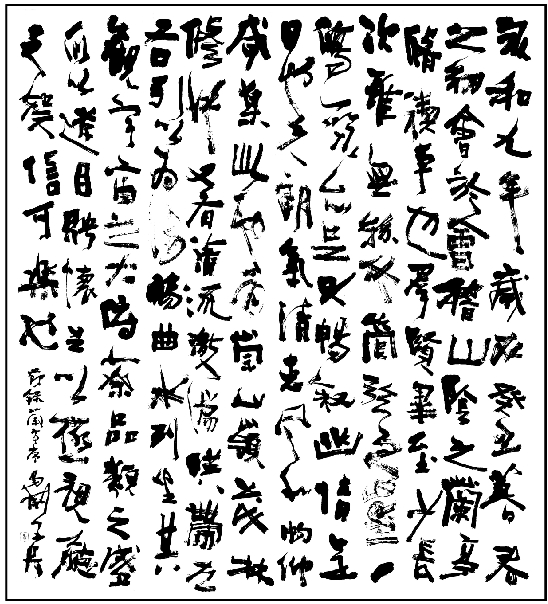 永和九年歲次癸丑暮春
之初會於會稽山陰之蘭亭
脩禊事也群賢畢至少長
次雖無絲竹管弦之盛一
觴一詠亦足以暢敘幽情是
日也天朗氣清惠風和暢仰
咸集此地有崇山嶺茂林
脩竹又有清流激湍映帶左
右引以為流觴曲水列坐其
觀宇宙之大俯察品類之盛
所以遊目騁懷足以極視聽
之娛信可樂也
節錄蘭亭序